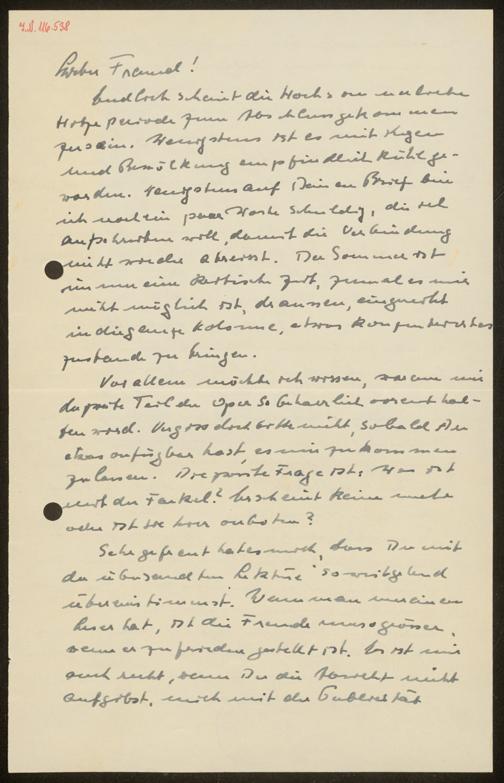 I.N. 116.538
Lieber Freund!
Endlich scheint die Woche
Hitzeperiode zum Abschluss gekommen
zu sein. Wenigstens ist es mit Regen
und Bewölkung empfindlich kühl ge-
worden. Wenigstens auf Deinen Brief bin
ich noch ein paar Worte schuldig, die ich
aufschreiben will, damit die Verbindung
nicht wieder abreisst. Der Sommer ist
immer eine kritische Zeit, zumal es mir
nicht möglich ist, draussen, eingereiht
in die ganze Kolonne, etwas Konzentriertes
zustande zu bringen.
Vor allem möchte ich wissen, warum mir
der zweite Teil der Oper so beharrlich vorenthal-
ten wird. Vergiss doch bitte nicht, sobald Du
etwas verfügbar hast, es mir zukommen
zu lassen. Die zweite Frage ist: Was ist
mit der Fackel? Erscheint keine mehr
oder ist sie hier verboten?
Sehr gefreut hat es mich, dass Du mit
der übersandten Lektüre so weitgehend
übereinstimmst. Wenn man nur einen
Leser hat, ist die Freude umso grösser,
wenn er zufrieden gestellt ist. Es ist mir
auch recht, wenn Du die Absicht nicht
aufgibst, mich mit der